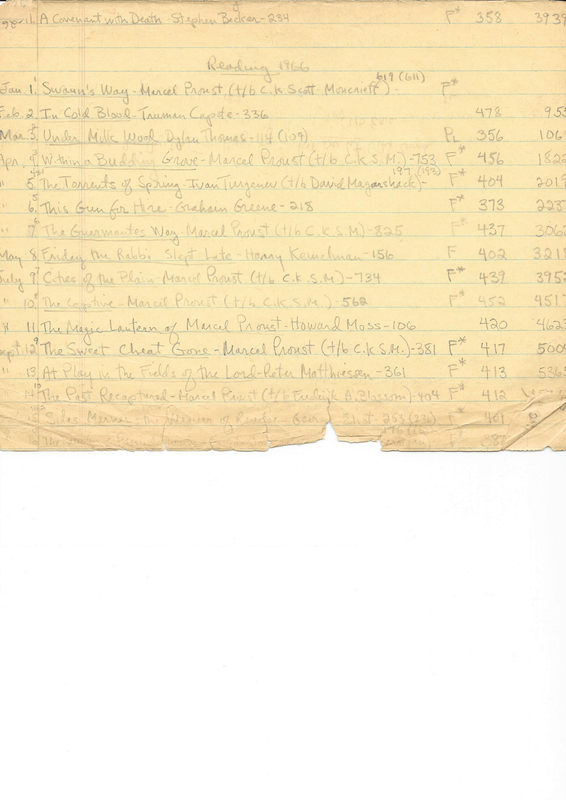 11. A Covenant with Death - Stephen Becker - 234 F* 358 3939
Reading 1966
619 (611)
Jan. 1. Swann's Way - Marcel Proust (t/b C.K. Scott Moncrieff) - F*
Feb. 2. In Cold Blood - Truman Capote - 336 478 955
Mar. 3. Under Milk Wood Dylan Thomas - 114 (109) PL 356 106
Apr. 4. Within a Budding Grove - Marcel Proust (t/b C.K.S.M.) - 753 F* 456 1822
197 (193)
" 5. The Torrents of Spring - Ivan Turgenev (t/b David Magarshack) - F* 404 2019
" 6. This Gun for Hire - Graham Greene - 218 F* 373 2237
" 7. The Guermantes Way - Marcel Proust (t/b C.K.S.M.) - 825 F* 437 3062
May 8. Friday the Rabbi Slept Late - Harry Kemelman - 156 F 402 321
July 9. Cities of the Plain - Marcel Proust (t/b C.K.S.M.) - 734 F* 439 3952
" 10. The Captive - Marcel Proust (t/b C.K.S.M.) - 562 F* 452 451
" 11. The Magic Lantern of Marcel Proust - Howard Moss - 106 420 462
Sept. 12. The Sweet Cheat Gone - Marcel Proust (t/b C.K.S.M.) - 381 F* 417 500
" 13. At Play in the Fields of the Lord - Peter Matthiessen - 361 F* 413 536
14. The Past Recaptured - Marcel Proust (t/b Frederick A. Blossom) - 404 F* 412
15. Silas Marner - the Weaver of Raveloe - George Eliot - 253 F* 401
387